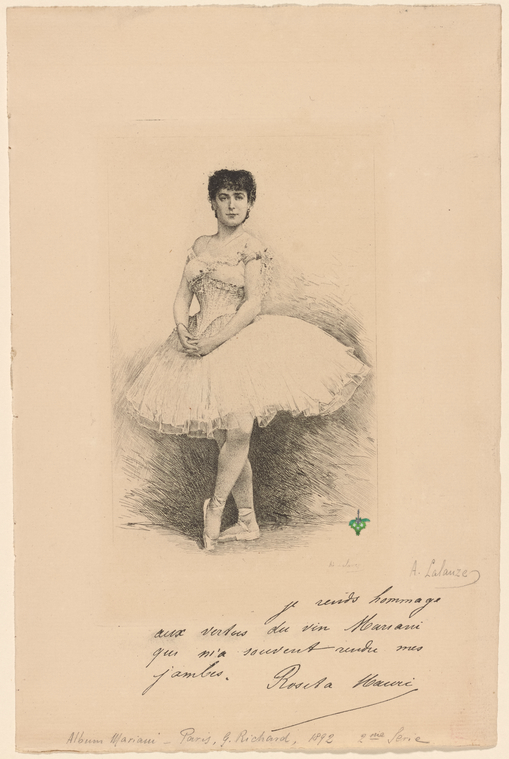 A. Lalauze
je rends hommage
aux vertus du vin Mariani
qui m'a souvent rendu mes
jambes. Rosita Mauri
Album Mariani - Paris, G. Richard, 1892 2me Serie